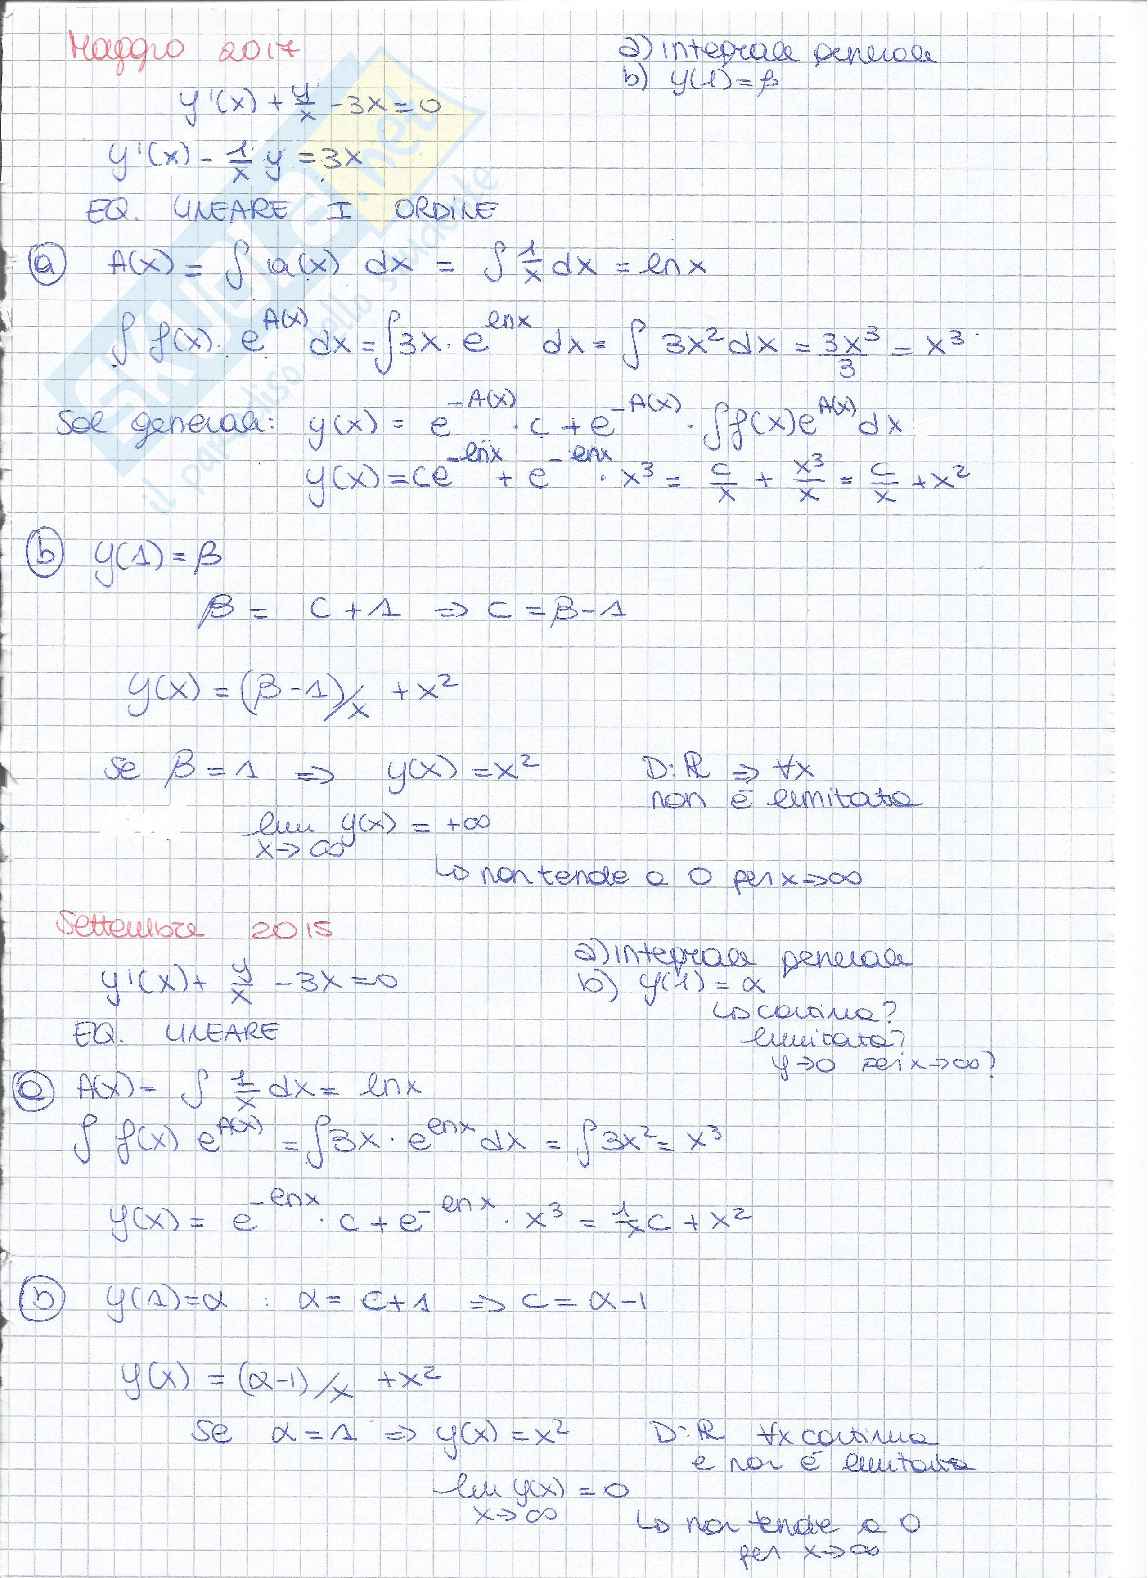 Maggio 2017
a) integrale generale
b) y(1)=β
y'(x) + y/x - 3x = 0
y'(x) - 1/x y = 3x
EQ. LINEARE I ORDINE
(a) A(x) = ∫ a(x) dx = ∫ 1/x dx = ln x
∫ f(x) · e^A(x) dx = ∫ 3x · e^lnx dx = ∫ 3x² dx = 3x³/3 = x³
Sol generale: y(x) = e^-A(x) · c + e^-A(x) · ∫ f(x) e^A(x) dx
y(x) = ce^-lnx + e^-lnx · x³ = c/x + x³/x = c/x + x²
(b) y(1) = β
β = C + 1 ⇒ C = β - 1
y(x) = (β - 1)/x + x²
Se β = 1 ⇒ y(x) = x² D: ℝ ⇒ ∀x
non è limitata
lim y(x) = +∞
x→∞
↳ non tende a 0 per x→∞
Settembre 2015
a) integrale generale
y'(x) + y/x - 3x = 0
b) y(1) = α
↳ continua?
EQ. LINEARE
limitata?
y→0 per x→∞?
(a) A(x) = ∫ 1/x dx = ln x
∫ f(x) e^A(x) = ∫ 3x · e^lnx dx = ∫ 3x² = x³
y(x) = e^-lnx · c + e^-lnx · x³ = 1/x c + x²
(b) y(1) = α : α = C + 1 ⇒ C = α - 1
y(x) = (α-1)/x + x²
Se α = 1 ⇒ y(x) = x² D: ℝ ∀x continua
e non è limitata
lim y(x) = 0
x→∞
↳ non tende a 0
per x→∞
SKUOLA.net
il paradiso dello studente